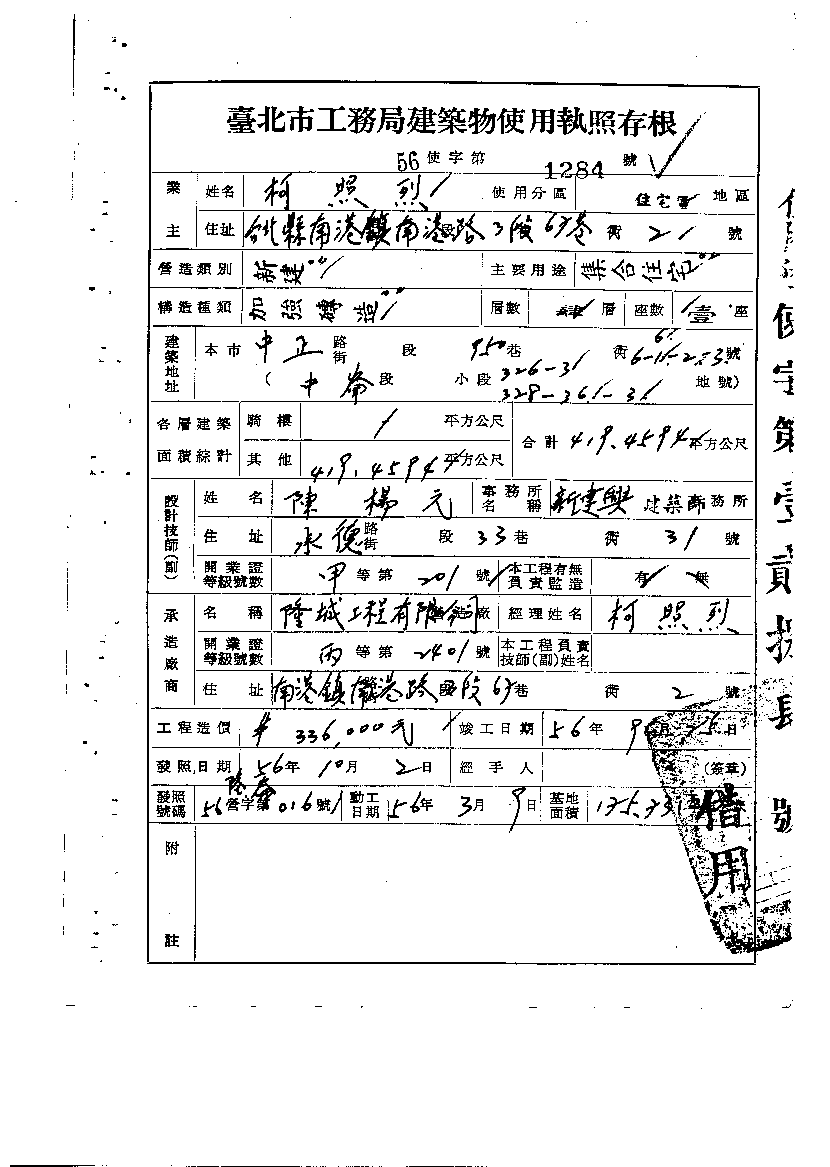 臺北市工務局建築物使用執照存根
56使字第 1284 號
業主 姓名 柯照烈 使用分區 住宅 地區
住址 台北縣南港鎮南港路3段67巷 街 21 號
營造類別 新建 主要用途 集合住宅
構造種類 加強磚造 層數 層 座數 壹 座
建築地址 本市 中正 路街 段 950巷 街 號
( 中崙段 小段 326-31 地號)
328-36
各層建築面積綜計 騎樓 平方公尺
其他 419.4594 平方公尺
合計 419.4594 平方公尺
設計技師(副) 姓名 陳楊元 事務所名稱 新建興 建築師事務所
住址 永德 路街 段 33巷 街 31 號
開業證等級號數 甲等第 201 號 本工程有無負責監造 有 無
承造廠商 名稱 隆城工程有限公司 廠 經理姓名 柯照烈
開業證等級號數 丙等第 2401 號 本工程負責技師(副)姓名
住址 南港鎮南港路 段 67巷 街 2 號
工程造價 336,000元 竣工日期 56年9月 日
發照日期 56年10月2日 經手人 (簽章)
發照號碼 56營字第 016號 動工日期 56年3月9日 基地面積
附註
借用
使字第壹貳捌 號